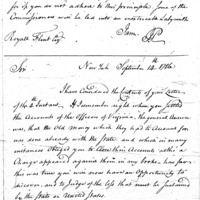 for if you do not adhere to this principle, some of the
Commissioners will be led into an inextricable Labyrinth
I am
Royall Flint Esqr.
New York September 14th 1786
Sir
I have Considered the Contents of your Letter
of the 2d Instant. If I remember right when you settled
the Accounts of the Officers of Virginia, the general Answer
was, that the Old Army which they had to Account for
was done already with the State and which in many
instances obliged you to Close their Accounts, altho' a
Charge appeared against them in my books. has
this was true you will now have an Opportunity to
discover, and to Judge of the loss that must be sustained
by the State or United States.